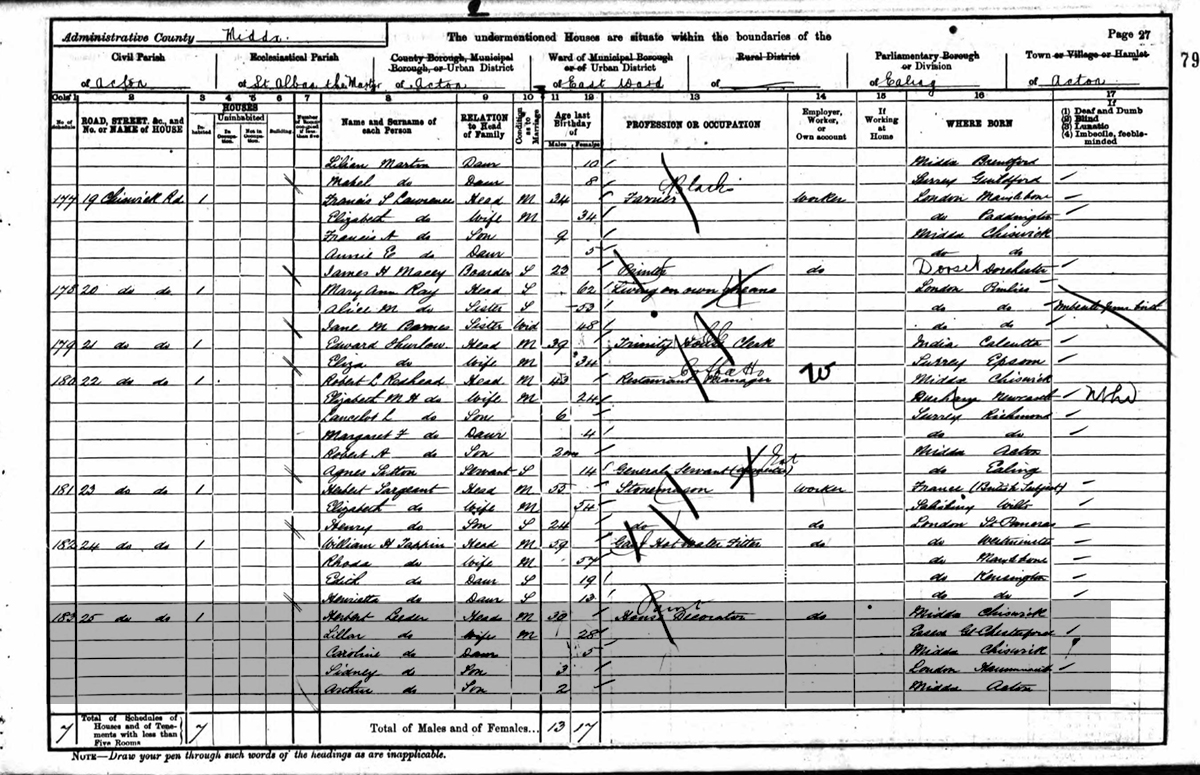 2
Administrative County Middx. The undermentioned Houses are situate within the boundaries of the Page 27
79
Civil Parish Ecclesiastical Parish County Borough, Municipal Borough, or Urban District Ward of Municipal Borough or of Urban District Rural District Parliamentary Borough or Division Town or Village or Hamlet
of Acton of St Alban the Martyr of Acton of East Ward of of Ealing of Acton
Cols 1 2 3 4 5 6 7 8 9 10 11 12 13 14 15 16 17
No. of Schedule ROAD, STREET, &c., and No. or NAME of HOUSE HOUSES Inhabited Uninhabited In Occupation. Not in Occupation. Building. Name and Surname of each Person RELATION to Head of Family Condition as to Marriage Age last Birthday of Males Females PROFESSION OR OCCUPATION Employer, Worker, or Own account If Working at Home WHERE BORN If (1) Deaf and Dumb (2) Blind (3) Lunatic (4) Imbecile, feeble-minded
Lilian Martin Daur 10 Middx Brentford
Mabel do Daur 8 Surrey Guildford
177 19 Chiswick Rd 1 Francis S Lawrence Head M 34 Farrier Blacks Worker London Marylebone
Elizabeth do Wife M 34 do Paddington
Francis A do Son 9 Middx Chiswick
Annie E do Daur 5 do do
James H Macey Boarder S 23 Printer do Dorset Dorchester
178 20 do do 1 Mary Ann Ray Head S 62 Living on own means London Pimlico
Alice M do Sister S 53 do do Imbecile from birth
Jane M Barnes Sister Wid 48 do do
179 21 do do 1 Edward Thurlow Head M 39 Trinity House Clerk India Calcutta
Eliza do Wife M 34 Surrey Epsom
180 22 do do 1 Robert L Redhead Head M 43 Restaurant Manager Coffee Ho W Middx Chiswick
Elizabeth M H do Wife M 24 Durham Newcastle
Lancelot L do Son 6 Surrey Richmond
Margaret F do Daur 4 do do
Robert A do Son 2 mo Middx Acton
Agnes Sutton Servant S 14 General Servant (domestic) do Ealing
181 23 do do 1 Herbert Sargeant Head M 55 Stonemason Worker France (British Subject)
Elizabeth do Wife M 54 Salisbury Wilts
Henry do Son S 24 do do London St Pancras
182 24 do do 1 William H Tappin Head M 59 Gas & Hot Water Fitter do do Westminster
Rhoda do Wife M 57 do Marylebone
Edith do Daur S 19 do Kensington
Henrietta do Daur S 13 do do
183 25 do do 1 Herbert Head M 30 House Decorator Paint do Middx Chiswick
Lillian do Wife M 28 Essex Gt Chesterford
Caroline do Daur 5 Middx Chiswick
Sidney do Son 3 London
Arthur do Son 2 Middx Acton
7 Total of Schedules of Houses and of Tenements with less than Five Rooms 7 Total of Males and of Females... 13 17
NOTE—Draw your pen through such words of the headings as are inapplicable.